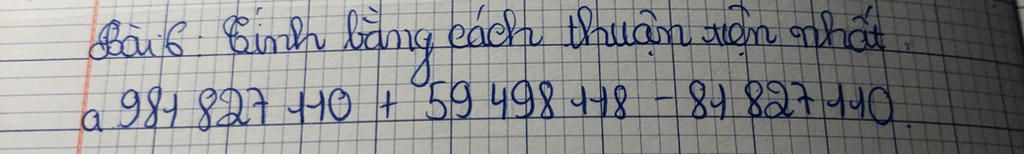 Bài 6. Tính bằng cách thuận tiện nhất.
a 981 827 110 + 59 498 118 - 81 827 110.